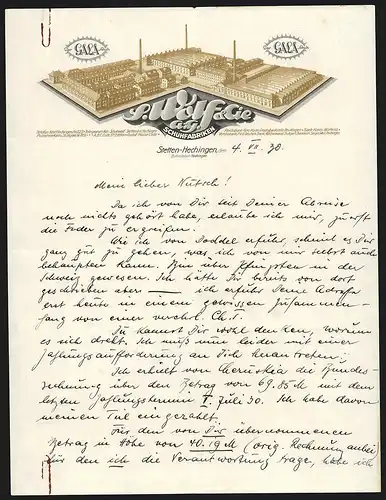 GALA
GALA
P. Wolf & Cie
G.m.b.H.
SCHUHFABRIKEN
Stetten-Hechingen, den 4. VII. 30.
Mein lieber Nutsch!
Da ich von Dir seit Deiner Abreise
noch nichts gehört habe, erlaube ich mir, zuerst
die Feder zu ergreifen.
Wie ich von Doddel erfuhr, scheint es Dir
ganz gut zu gehen, was ich von mir selbst auch
behaupten kann. Bin über Pfingsten in der
Schweiz gewesen. Ich hätte Dir bereits von dort
geschrieben aber — ich erfuhr Deine Adresse
erst heute in einem gewissen Zusammen-
hang von einer verehrl. Ch. T.
Du kannst Dir wohl denken, worum
es sich dreht. Ich muß nun leider mit einer
Zahlungsaufforderung an Dich herantreten:
Ich erhielt von Cheruskia die Bundes-
rechnung über den Betrag von 69.85 M mit dem
letzten Zahlungstermin 7. Juli 30. Ich habe davon
meinen Teil eingezahlt.
Für den von Dir übernommenen
Betrag in Höhe von 40.19 M (orig. Rechnung anbei)
für den ich die Verantwortung trage, habe ich